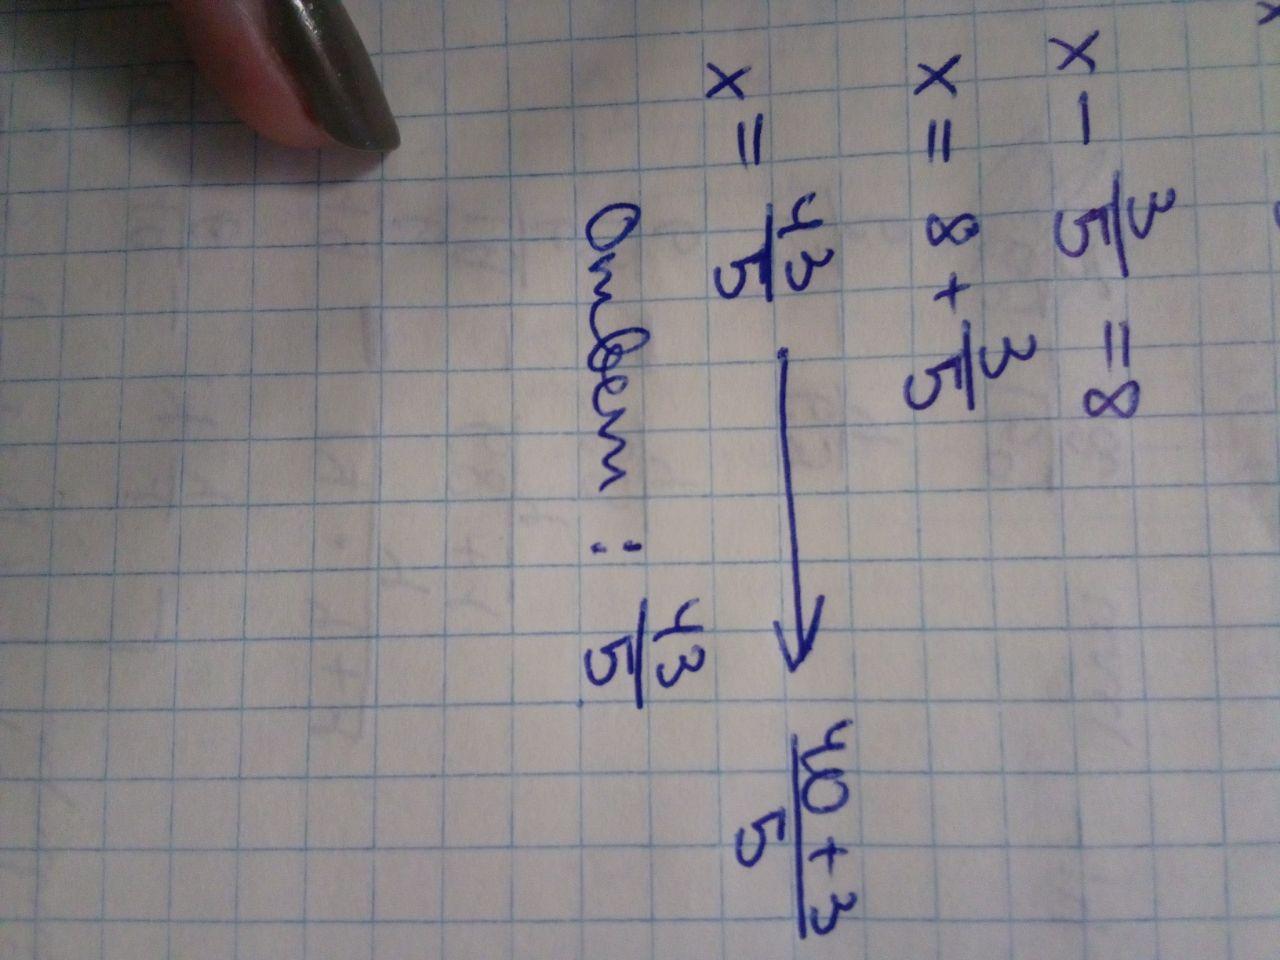 x - 3/5 = 8
x = 8 + 3/5
x = 43/5 → 40 + 3/5
Ответ: 43/5